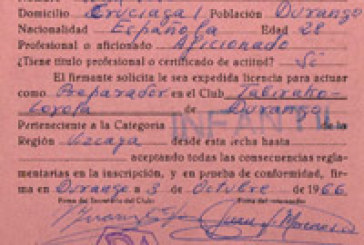 Domicilio Cruciaga 1 Población Durango
Nacionalidad Española Edad 28
Profesional o aficionado Aficionado
¿Tiene título profesional o certificado de actitud? Si
El firmante solicita le sea expedida licencia para actuar
como Preparador en el Club Tabirako-
de Durango
INFANTIL
Perteneciente a la Categoría
Región Vizcaya desde esta fecha hasta
aceptando todas las consecuencias regla-
mentarias en la inscripción, y en prueba de conformidad, fir-
ma en Durango a 3 de Octubre de 1966
Firma del Secretario del Club
Firma del